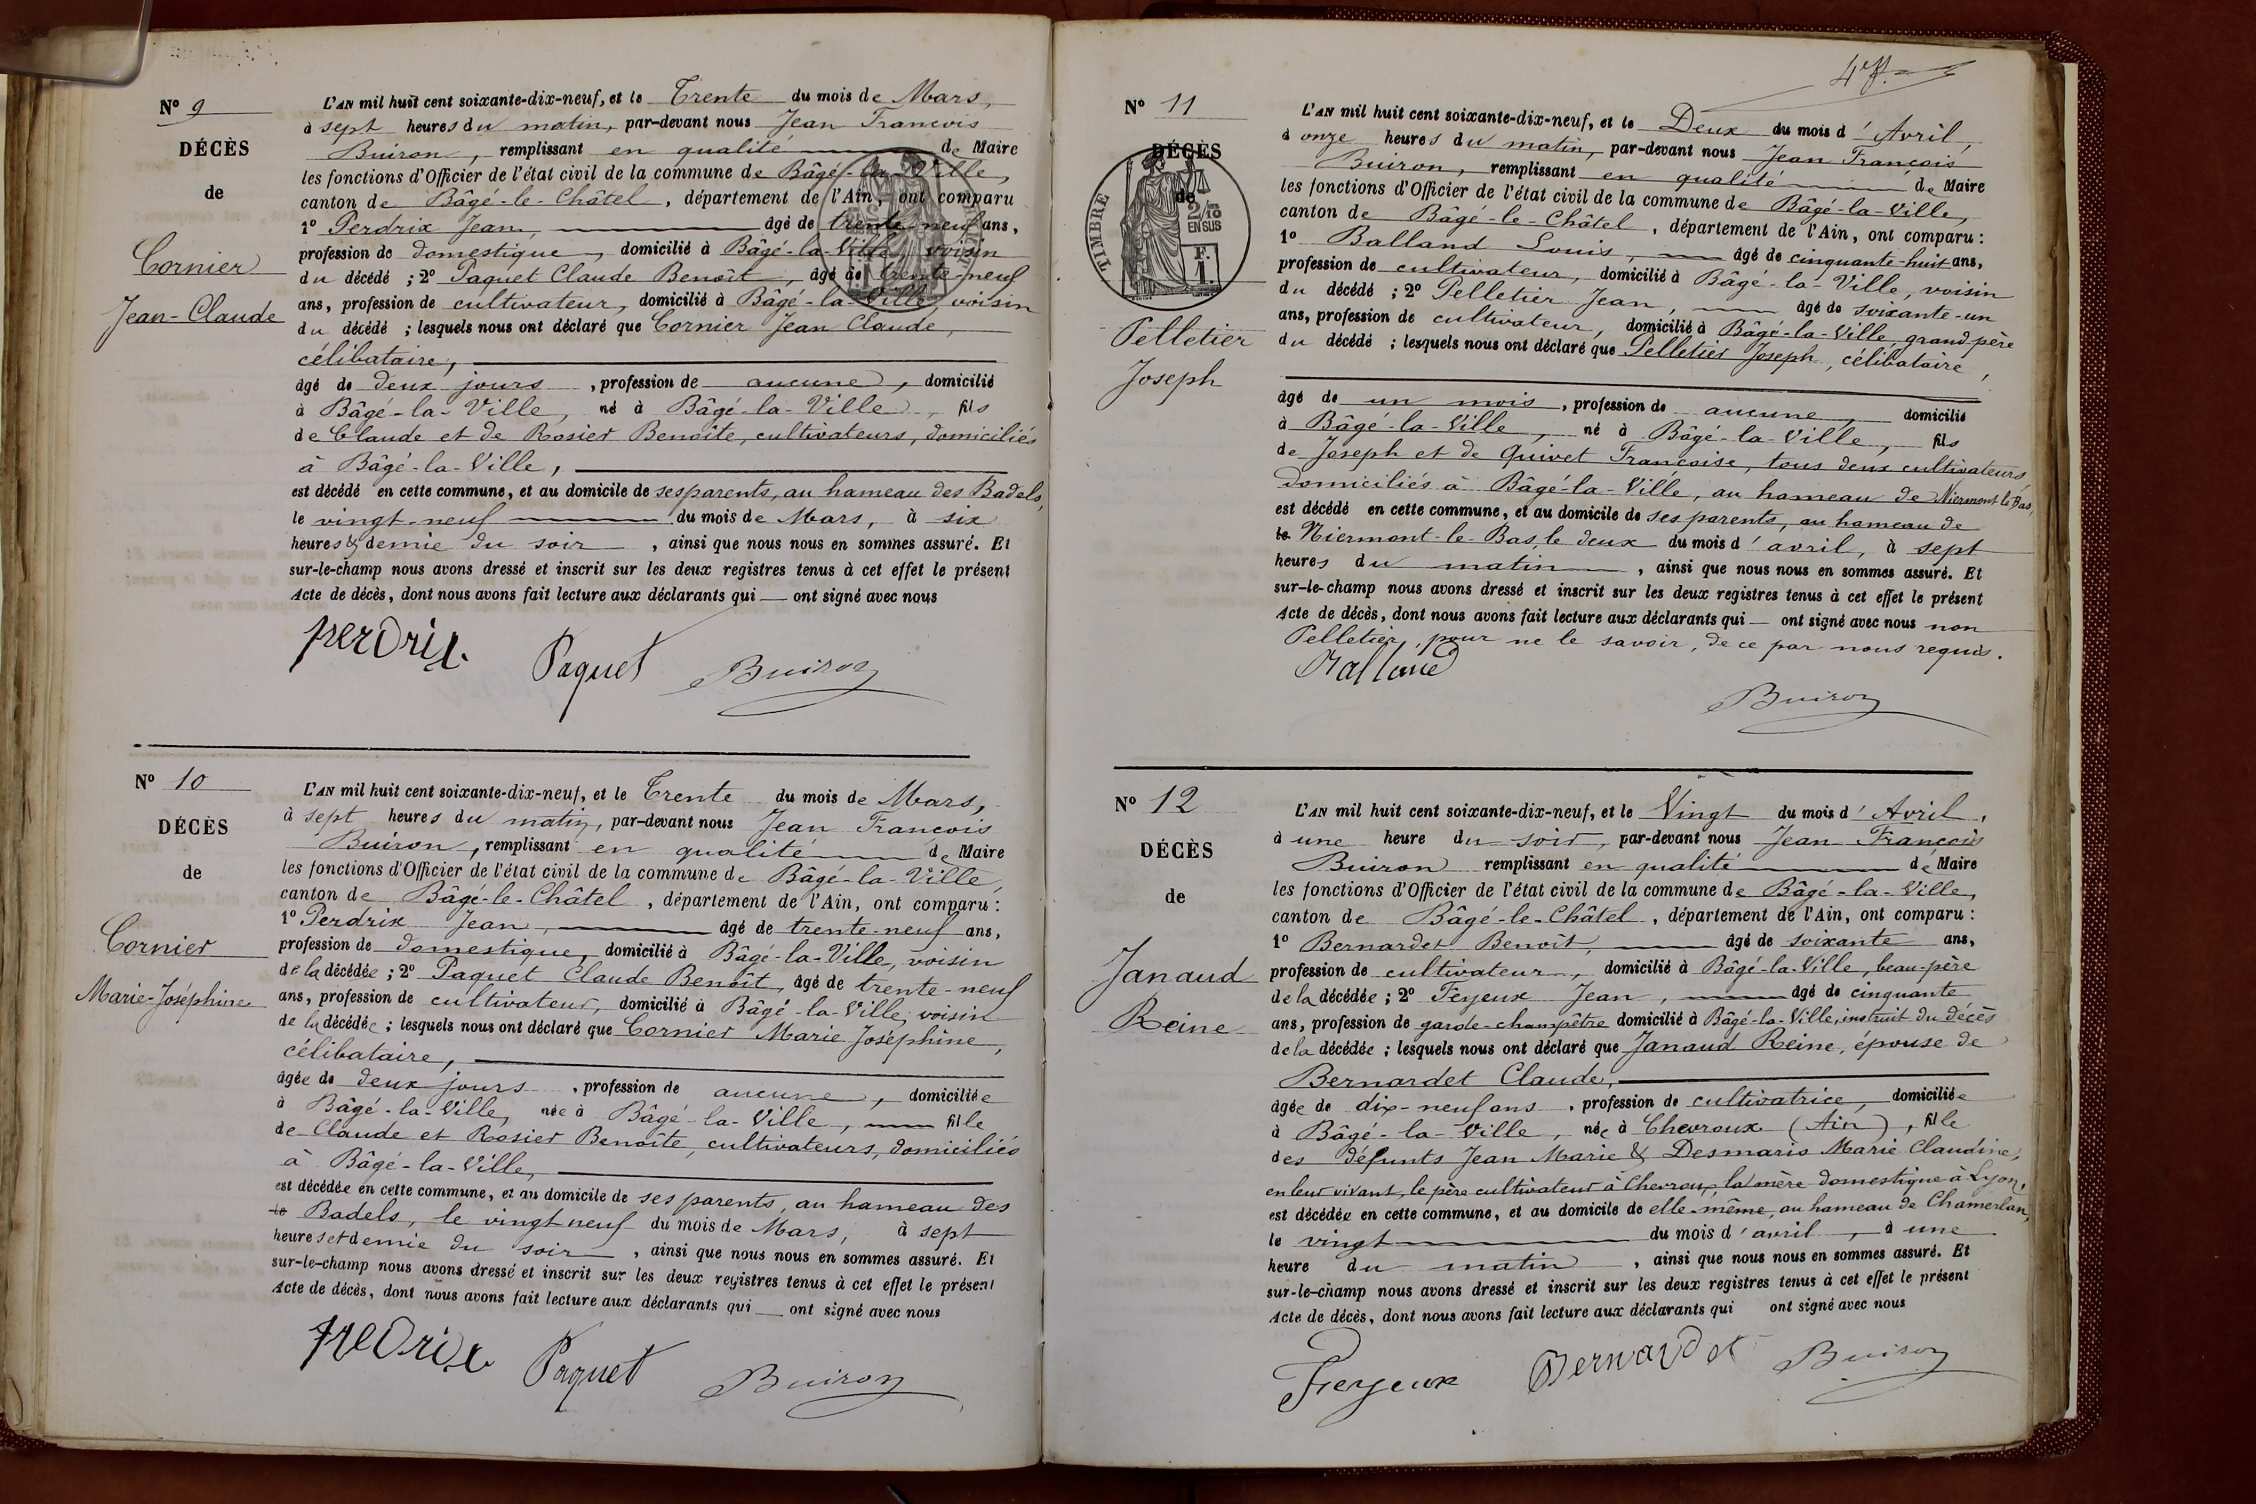 Nº 9
DÉCÈS
de
Cornier
Jean-Claude
L'AN mil huit cent soixante-dix-neuf, et le Trente du mois de Mars,
à sept heures du matin, par-devant nous Jean François
Buiron, remplissant en qualité de Maire
les fonctions d'Officier de l'état civil de la commune de Bâgé-la-Ville,
canton de Bâgé-le-Châtel, département de l'Ain, ont comparu
1º Perdrix Jean, âgé de trente-neuf ans,
profession de domestique, domicilié à Bâgé-la-Ville, voisin
du décédé ; 2º Paquet Claude Benoît, âgé de trente-neuf
ans, profession de cultivateur, domicilié à Bâgé-la-Ville, voisin
du décédé ; lesquels nous ont déclaré que Cornier Jean Claude,
célibataire,
âgé de deux jours, profession de aucune, domicilié
à Bâgé-la-Ville, né à Bâgé-la-Ville, fils
de Claude et de Rosier Benoîte, cultivateurs, domiciliés
à Bâgé-la-Ville,
est décédé en cette commune, et au domicile de ses parents, au hameau des Badels,
le vingt-neuf du mois de Mars, à six
heures & demie du soir, ainsi que nous nous en sommes assuré. Et
sur-le-champ nous avons dressé et inscrit sur les deux registres tenus à cet effet le présent
Acte de décès, dont nous avons fait lecture aux déclarants qui — ont signé avec nous
perdrix Paquet Buiron
Nº 10
DÉCÈS
de
Cornier
Marie-Joséphine
L'AN mil huit cent soixante-dix-neuf, et le Trente du mois de Mars,
à sept heures du matin, par-devant nous Jean François
Buiron, remplissant en qualité de Maire
les fonctions d'Officier de l'état civil de la commune de Bâgé-la-Ville,
canton de Bâgé-le-Châtel, département de l'Ain, ont comparu :
1º Perdrix Jean, âgé de trente-neuf ans,
profession de domestique, domicilié à Bâgé-la-Ville, voisin
de la décédée ; 2º Paquet Claude Benoît, âgé de trente-neuf
ans, profession de cultivateur, domicilié à Bâgé-la-Ville, voisin
de la décédée ; lesquels nous ont déclaré que Cornier Marie Joséphine,
célibataire,
âgée de deux jours, profession de aucune, domiciliée
à Bâgé-la-Ville, née à Bâgé-la-Ville, fille
de Claude et Rosier Benoîte, cultivateurs, domiciliés
à Bâgé-la-Ville,
est décédée en cette commune, et au domicile de ses parents, au hameau des
le Badels, le vingt neuf du mois de Mars, à sept
heures et demie du soir, ainsi que nous nous en sommes assuré. Et
sur-le-champ nous avons dressé et inscrit sur les deux registres tenus à cet effet le présent
Acte de décès, dont nous avons fait lecture aux déclarants qui — ont signé avec nous
perdrix Paquet Buiron
Nº 11
DÉCÈS
de
TIMBRE
2/10
EN SUS
F.
1
Pelletier
Joseph
L'AN mil huit cent soixante-dix-neuf, et le Deux du mois d'Avril,
à onze heures du matin, par-devant nous Jean François
Buiron, remplissant en qualité de Maire
les fonctions d'Officier de l'état civil de la commune de Bâgé-la-Ville,
canton de Bâgé-le-Châtel, département de l'Ain, ont comparu :
1º Balland Louis, âgé de cinquante-huit ans,
profession de cultivateur, domicilié à Bâgé-la-Ville, voisin
du décédé ; 2º Pelletier Jean, âgé de soixante-un
ans, profession de cultivateur, domicilié à Bâgé-la-Ville, grand père
du décédé ; lesquels nous ont déclaré que Pelletier Joseph, célibataire,
âgé de un mois, profession de aucune, domicilié
à Bâgé-la-Ville, né à Bâgé-la-Ville, fils
de Joseph et de Quivet Françoise, tous deux cultivateurs
domiciliés à Bâgé-la-Ville, au hameau de Niermont le Bas,
est décédé en cette commune, et au domicile de ses parents, au hameau de
le Niermont-le-Bas, le deux du mois d'avril, à sept
heures du matin, ainsi que nous nous en sommes assuré. Et
sur-le-champ nous avons dressé et inscrit sur les deux registres tenus à cet effet le présent
Acte de décès, dont nous avons fait lecture aux déclarants qui — ont signé avec nous non
Pelletier, pour ne le savoir, de ce par nous requis.
Balland
Buiron
Nº 12
DÉCÈS
de
Janaud
Reine
L'AN mil huit cent soixante-dix-neuf, et le Vingt du mois d'Avril,
à une heure du soir, par-devant nous Jean François
Buiron remplissant en qualité de Maire
les fonctions d'Officier de l'état civil de la commune de Bâgé-la-Ville,
canton de Bâgé-le-Châtel, département de l'Ain, ont comparu :
1º Bernardet Benoît, âgé de soixante ans,
profession de cultivateur, domicilié à Bâgé-la-Ville, beau-père
de la décédée ; 2º Feyeux Jean, âgé de cinquante
ans, profession de garde-champêtre domicilié à Bâgé-la-Ville, instruit du décès
de la décédée ; lesquels nous ont déclaré que Janaud Reine, épouse de
Bernardet Claude,
âgée de dix-neuf ans, profession de cultivatrice, domiciliée
à Bâgé-la-Ville, née à Chevroux (Ain), fille
des défunts Jean Marie & Desmaris Marie Claudine,
en leur vivant, le père cultivateur à Chevroux, la mère domestique à Lyon,
est décédée en cette commune, et au domicile de elle-même, au hameau de Chamerlan,
le vingt du mois d'avril, à une
heure du matin, ainsi que nous nous en sommes assuré. Et
sur-le-champ nous avons dressé et inscrit sur les deux registres tenus à cet effet le présent
Acte de décès, dont nous avons fait lecture aux déclarants qui ont signé avec nous
Feyeux Bernardet Buiron